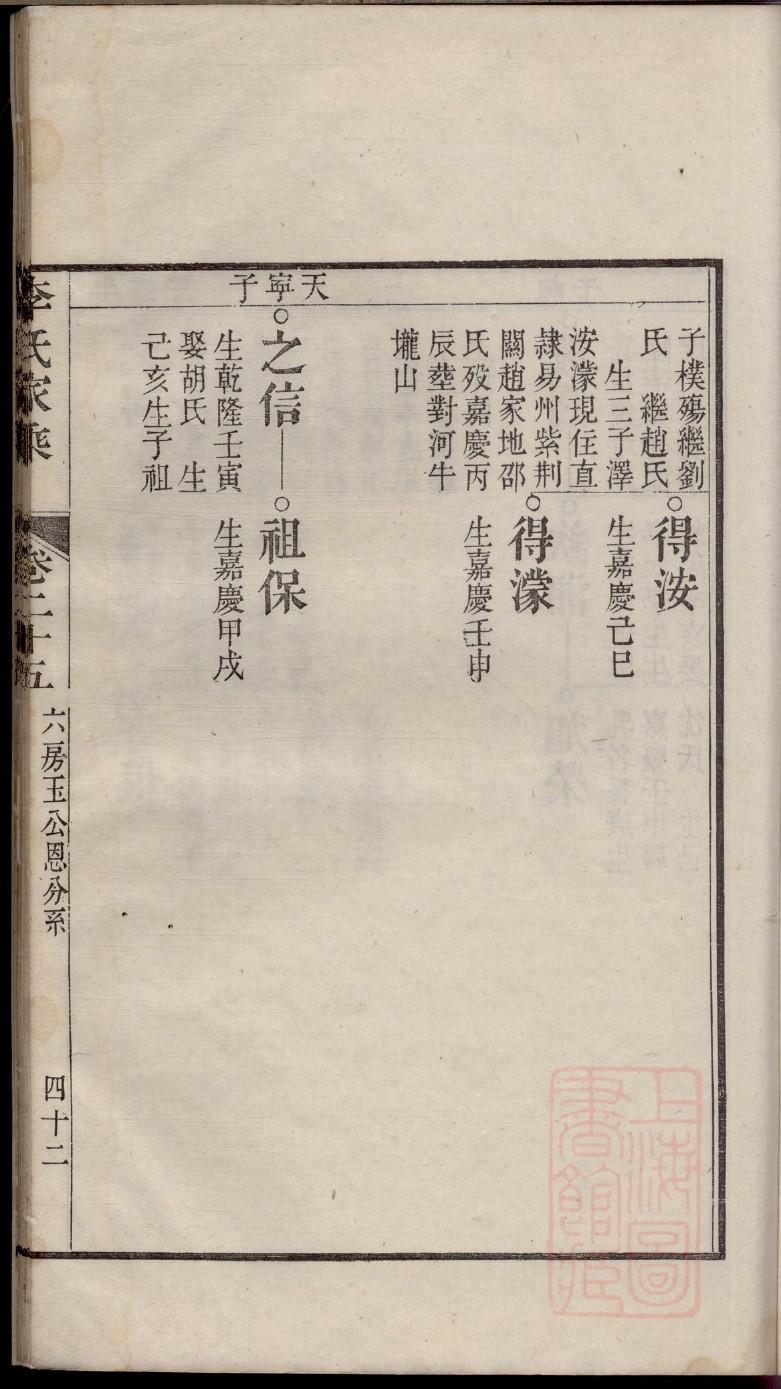 天寧子
子樸殤繼劉
氏　繼趙氏
生三子澤
洝濛現住直
隸易州紫荆
關趙家地邵
氏歿嘉慶丙
辰塟對河牛
壠山
得洝
生嘉慶己巳
得濛
生嘉慶壬申
之信
生乾隆壬寅
娶胡氏　生
己亥生子祖
祖保
生嘉慶甲戌
李氏家乘
卷二十五
六房玉公恩分系
四十二
上海圖書館藏